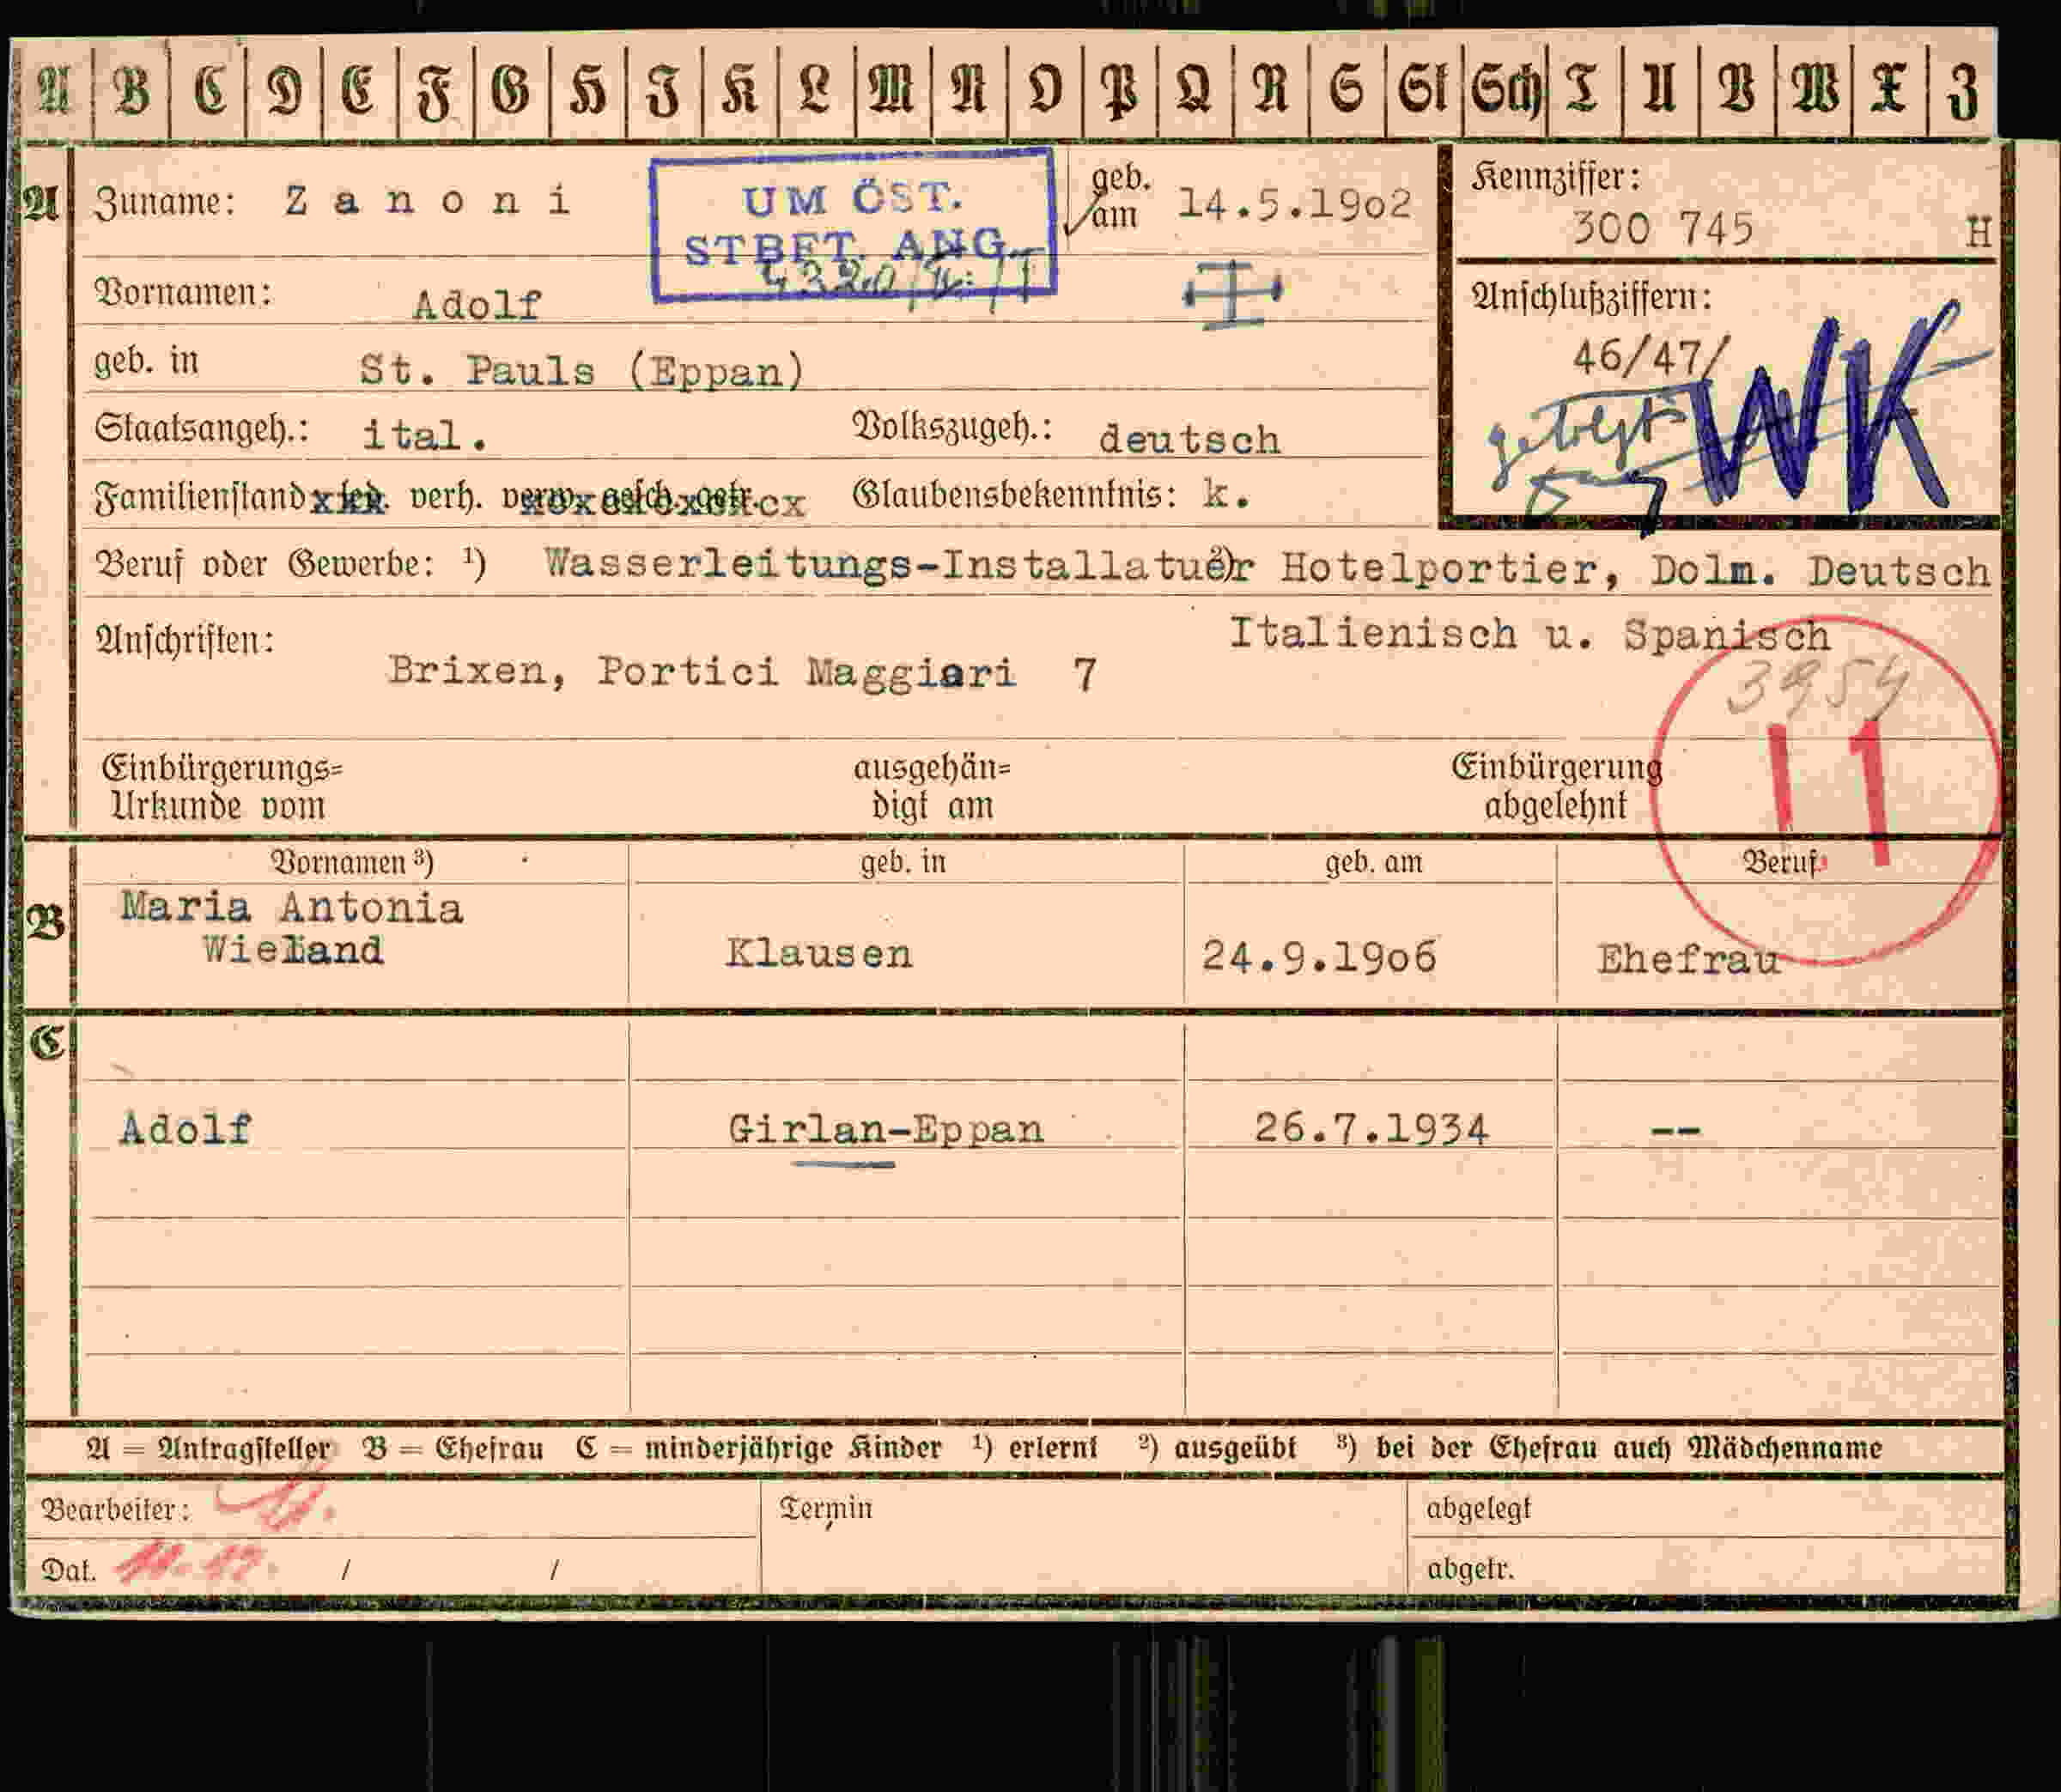 A B C D E F G H I K L M N O P Q R S St Sch T U V W X Z
A Zuname: Zanoni
UM ÖST.
STBET. ANG.
geb. am 14.5.1902
Kennziffer:
300 745 H
Vornamen: Adolf
Anschlußziffern:
46/47/
WK
geb. in St. Pauls (Eppan)
Staatsangeh.: ital. Volkszugeh.: deutsch
Familienstand verh. Glaubensbekenntnis: k.
Beruf oder Gewerbe: ¹) Wasserleitungs-Installatuer ²) Hotelportier, Dolm. Deutsch
Italienisch u. Spanisch
Anschriften:
Brixen, Portici Maggiari 7
3954
11
Einbürgerungs=
Urkunde vom
ausgehän=
digt am
Einbürgerung
abgelehnt
Vornamen ³) geb. in geb. am Beruf
B Maria Antonia
Wieland Klausen 24.9.1906 Ehefrau
C
Adolf Girlan-Eppan 26.7.1934 --
A = Antragsteller B = Ehefrau C = minderjährige Kinder ¹) erlernt ²) ausgeübt ³) bei der Ehefrau auch Mädchenname
Bearbeiter: Termin abgelegt
Dat. / / abgetr.